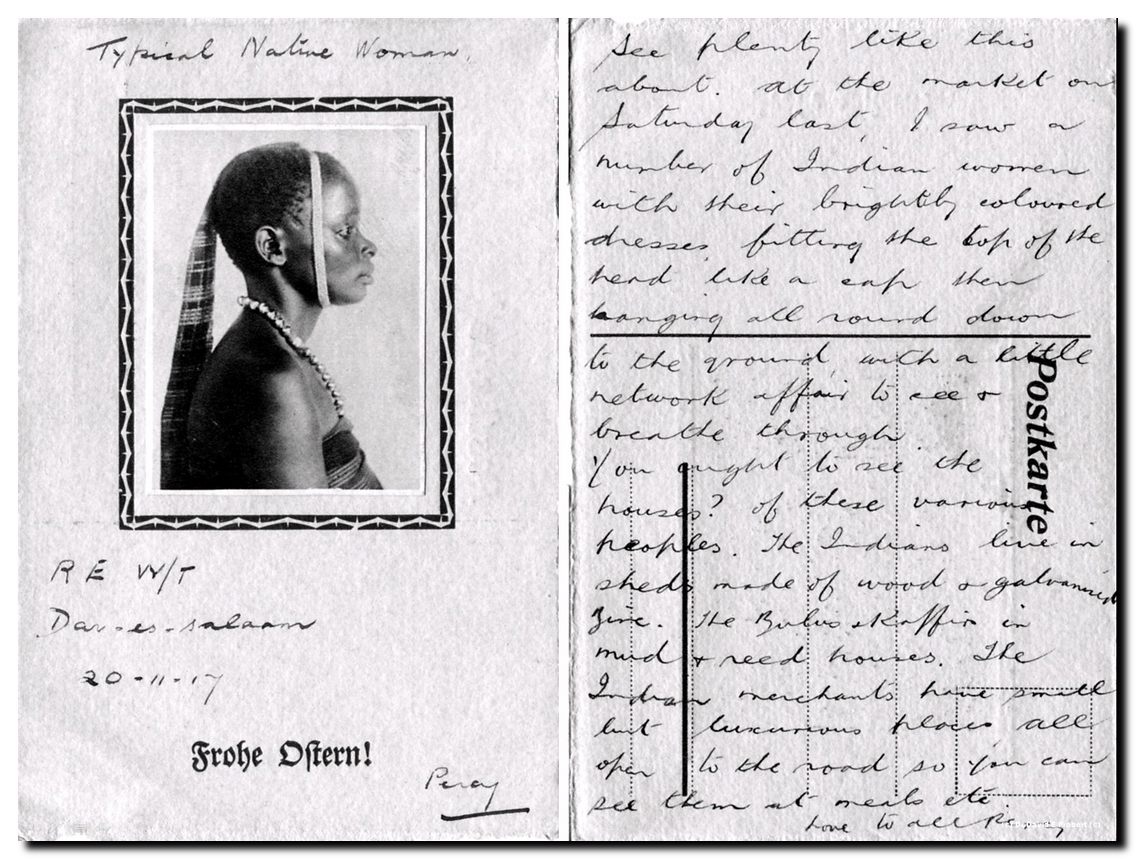 Typical Native Woman.
R E W/T
Dar-es-salaam
20-11-17
Frohe Ostern!
Percy
See plenty like this
about. at the market on
Saturday last, I saw a
number of Indian women
with their brightly coloured
dresses, fitting the top of the
head like a cap then
hanging all round down
to the ground, with a little
network affair to see &
breathe through.
You ought to see the
houses? of these various
peoples. The Indians live in
sheds made of wood & galvanised
zinc. The Zulus & Kaffirs in
mud & reed houses. The
Indian merchants have small
but luxurious places all
open to the road so you can
see them at meals etc.
Love to all Percy
Postkarte